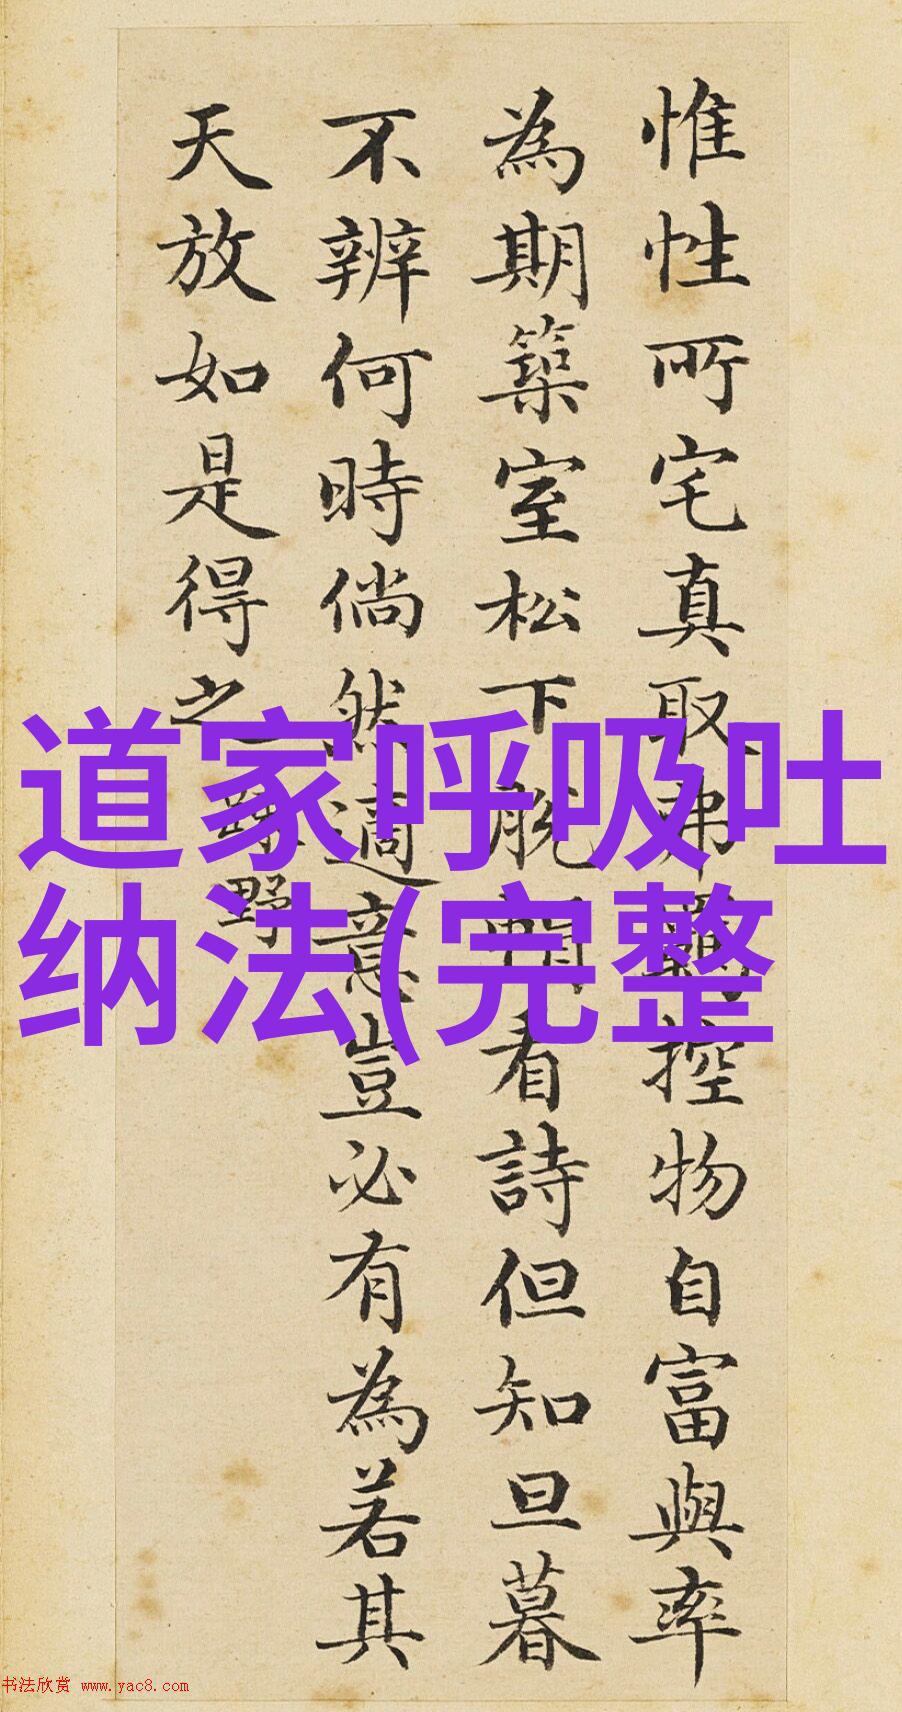 惟性所宅真取弗羈控物自富與率
為期築室松下脫帽看詩但知旦暮
不辨何時倘然適意豈必有為若其
天放如是得之
疎野
道家呼吸吐
纳法(完整
书法欣赏 www.yac8.com